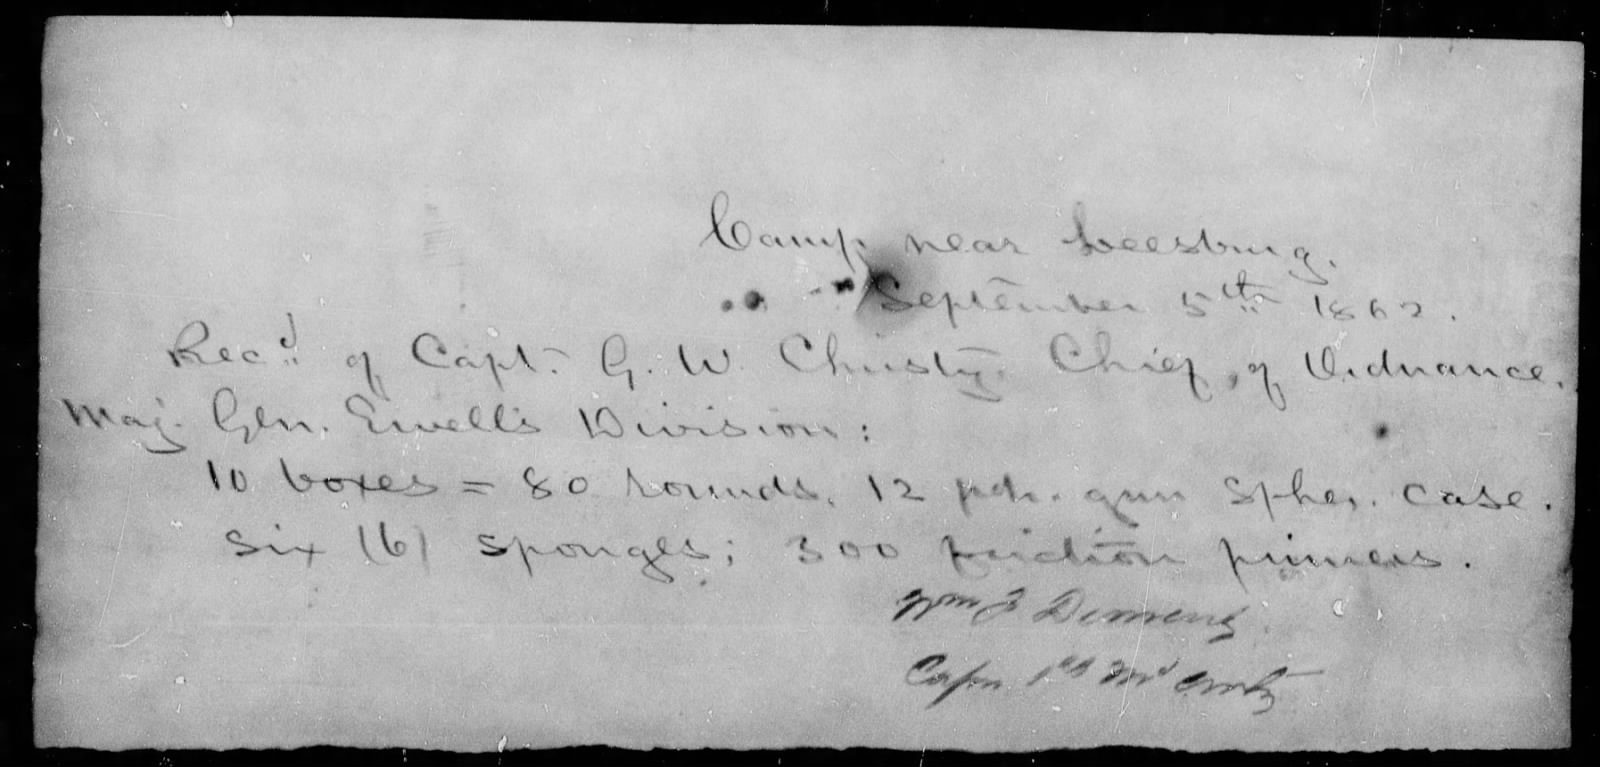 Camp near Leesburg.
September 5th 1862.
Recd of Capt. G. W. Christy Chief of Ordnance.
Maj. Gen. Ewell's Division:
10 boxes = 80 rounds. 12 pdr. gun Spher. case.
Six (6) sponges; 300 friction primers.
Wm F Dement
Capn 1st Md Arty